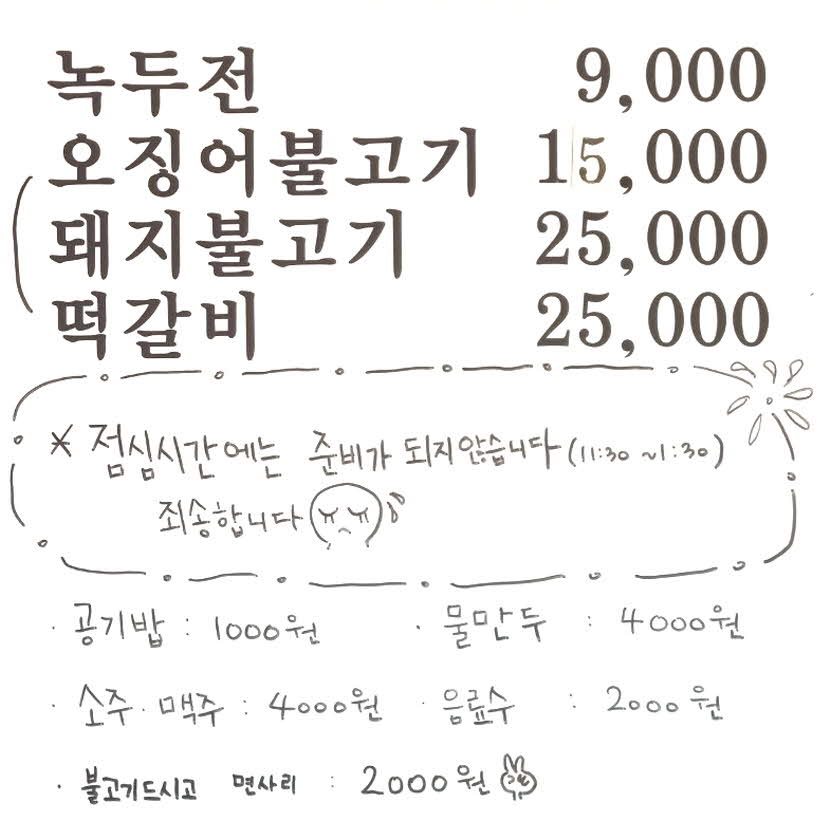 녹두전 9,000
오징어불고기 15,000
돼지불고기 25,000
떡갈비 25,000
* 점심시간에는 준비가 되지않습니다 (11:30 ~1:30)
죄송합니다
· 공기밥 : 1000원 · 물만두 : 4000원
· 소주 · 맥주 : 4000원 · 음료수 : 2000원
· 불고기드시고 면사리 : 2000원